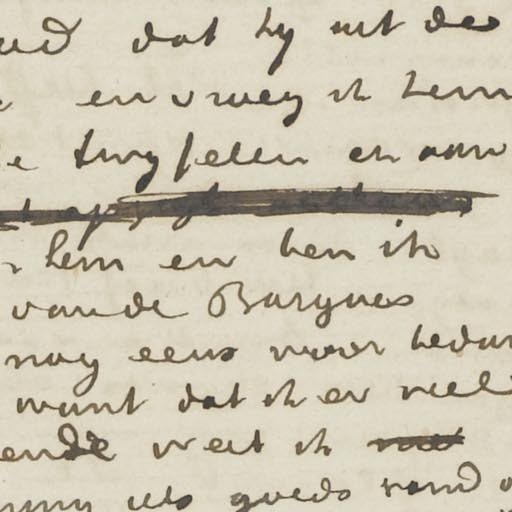 dat hy uit de
en vraeg ik hem
twyfelen en aan
hem en ben ik
van de Barynes
nog eens voor bedan
want dat ik er veel
ende weet ik niet
iets goeds rond